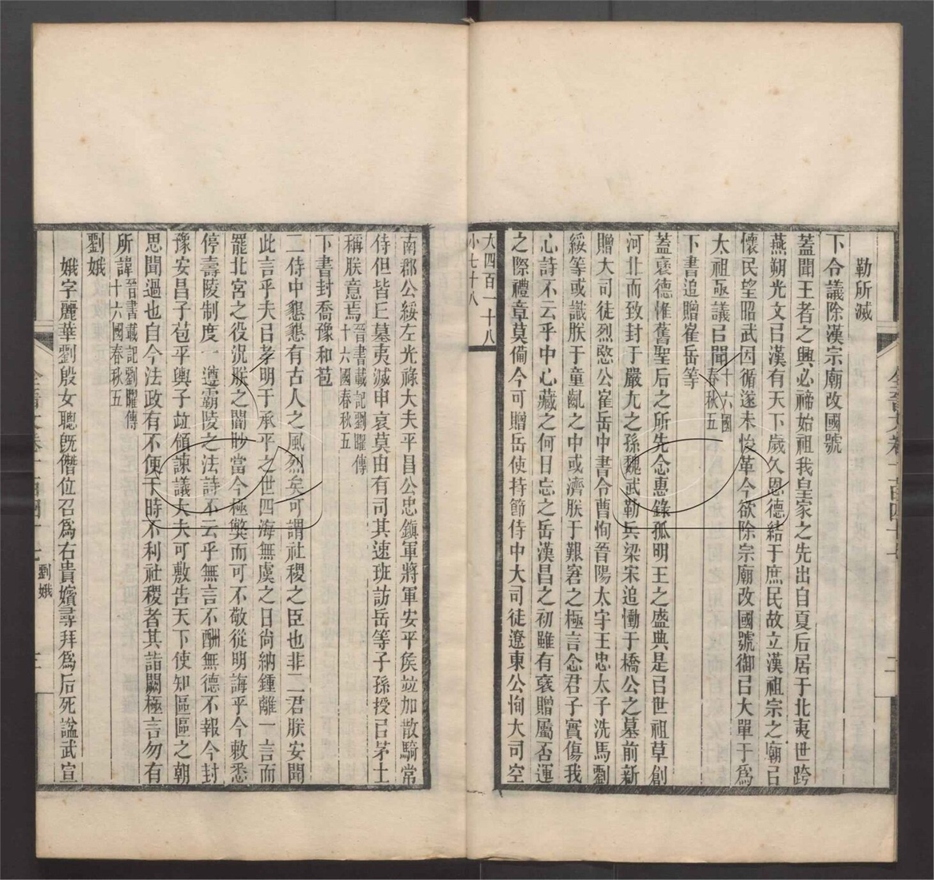 勒所滅
下令議除漢宗廟改國號
蓋聞王者之興必禘始祖我皇家之先出自夏后居于北夷世跨
燕朔光文㠯漢有天下歲久恩德結于庶民故立漢祖宗之廟㠯
懷民望昭武因循遂未悛革今欲除宗廟改國號御㠯大單于爲
太祖亟議㠯聞十六國春秋五
下書追贈崔岳等
蓋襃德惟舊聖后之所先念惠錄孤明王之盛典是㠯世祖草創
河北而致封于嚴尤之孫魏武勒兵梁宋追慟于橋公之墓前新
贈大司徒烈愍公崔岳中書令曹恂晉陽太守王忠太子洗馬劉
綏等或識朕于童齔之中或濟朕于艱窘之極言念君子實傷我
心詩不云乎中心藏之何日忘之岳漢昌之初雖有襃贈屬否運
之際禮章莫僃今可贈岳使持節侍中大司徒遼東公恂大司空
大四百一十八
小七十八
南郡公綏左光祿大夫平昌公忠鎮軍將軍安平矦竝加散騎常
侍但皆丘墓夷滅申哀莫由有司其速班訪岳等子孫授㠯茅土
稱朕意焉晉書載記劉曜傳十六國春秋五
下書封喬豫和苞
二侍中懇懇有古人之風烈矣可謂社稷之臣也非二君朕安聞
此言乎夫㠯孝明于承平之世四海無虞之日尚納鍾離一言而
罷北宮之役況朕之闇眇當今極獘而可不敬從明誨乎今敕悉
停壽陵制度一遵霸陵之法詩不云乎無言不酬無德不報今封
豫安昌子苞平輿子竝領諫議大夫可敷告天下使知區區之朝
思聞過也自今法政有不便于時不利社稷者其詣闕極言勿有
所諱晉書載記劉曜傳十六國春秋五
劉娥
娥字麗華劉殷女聰旣僭位召爲右貴嬪尋拜爲后死謚武宣
劉娥
三